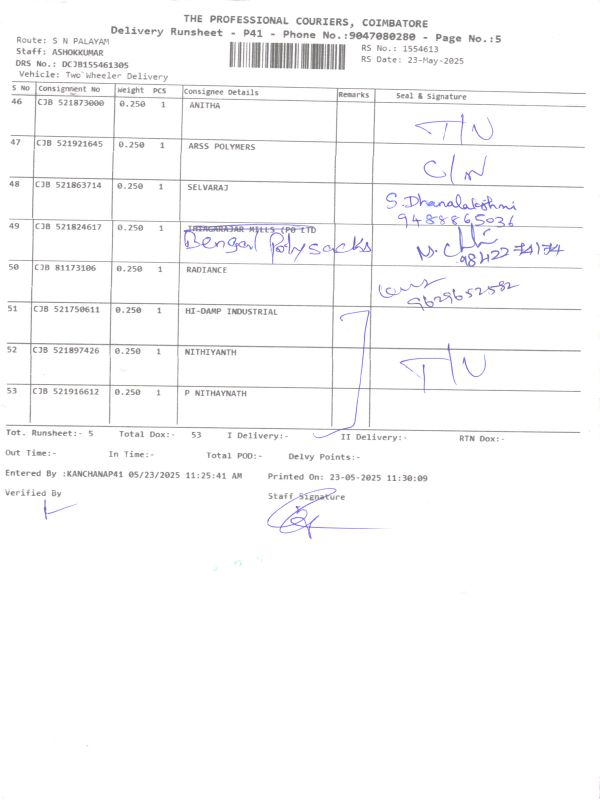 THE PROFESSIONAL COURIERS, COIMBATORE
Delivery Runsheet - P41 - Phone No.:9047080280 - Page No.:5
Route: S N PALAYAM
RS No.: 1554613
Staff: ASHOKKUMAR
RS Date: 23-May-2025
DRS No.: DCJB155461305
Vehicle: Two Wheeler Delivery
S No Consignment No Weight PCS Consignee Details Remarks Seal & Signature
46 CJB 521873000 0.250 1 ANITHA
T/N
47 CJB 521921645 0.250 1 ARSS POLYMERS
C/N
48 CJB 521863714 0.250 1 SELVARAJ
S. Dhanalakshmi
9488865036
49 CJB 521824617 0.250 1 THIAGARAJAR MILLS (P0 LTD
Bengal Polysacks
50 CJB 81173106 0.250 1 RADIANCE
9629652582
51 CJB 521750611 0.250 1 HI-DAMP INDUSTRIAL
52 CJB 521897426 0.250 1 NITHIYANTH
T/N
53 CJB 521916612 0.250 1 P NITHAYNATH
Tot. Runsheet:- 5 Total Dox:- 53 I Delivery:- II Delivery:- RTN Dox:-
Out Time:- In Time:- Total POD:- Delvy Points:-
Entered By :KANCHANAP41 05/23/2025 11:25:41 AM Printed On: 23-05-2025 11:30:09
Verified By Staff Signature